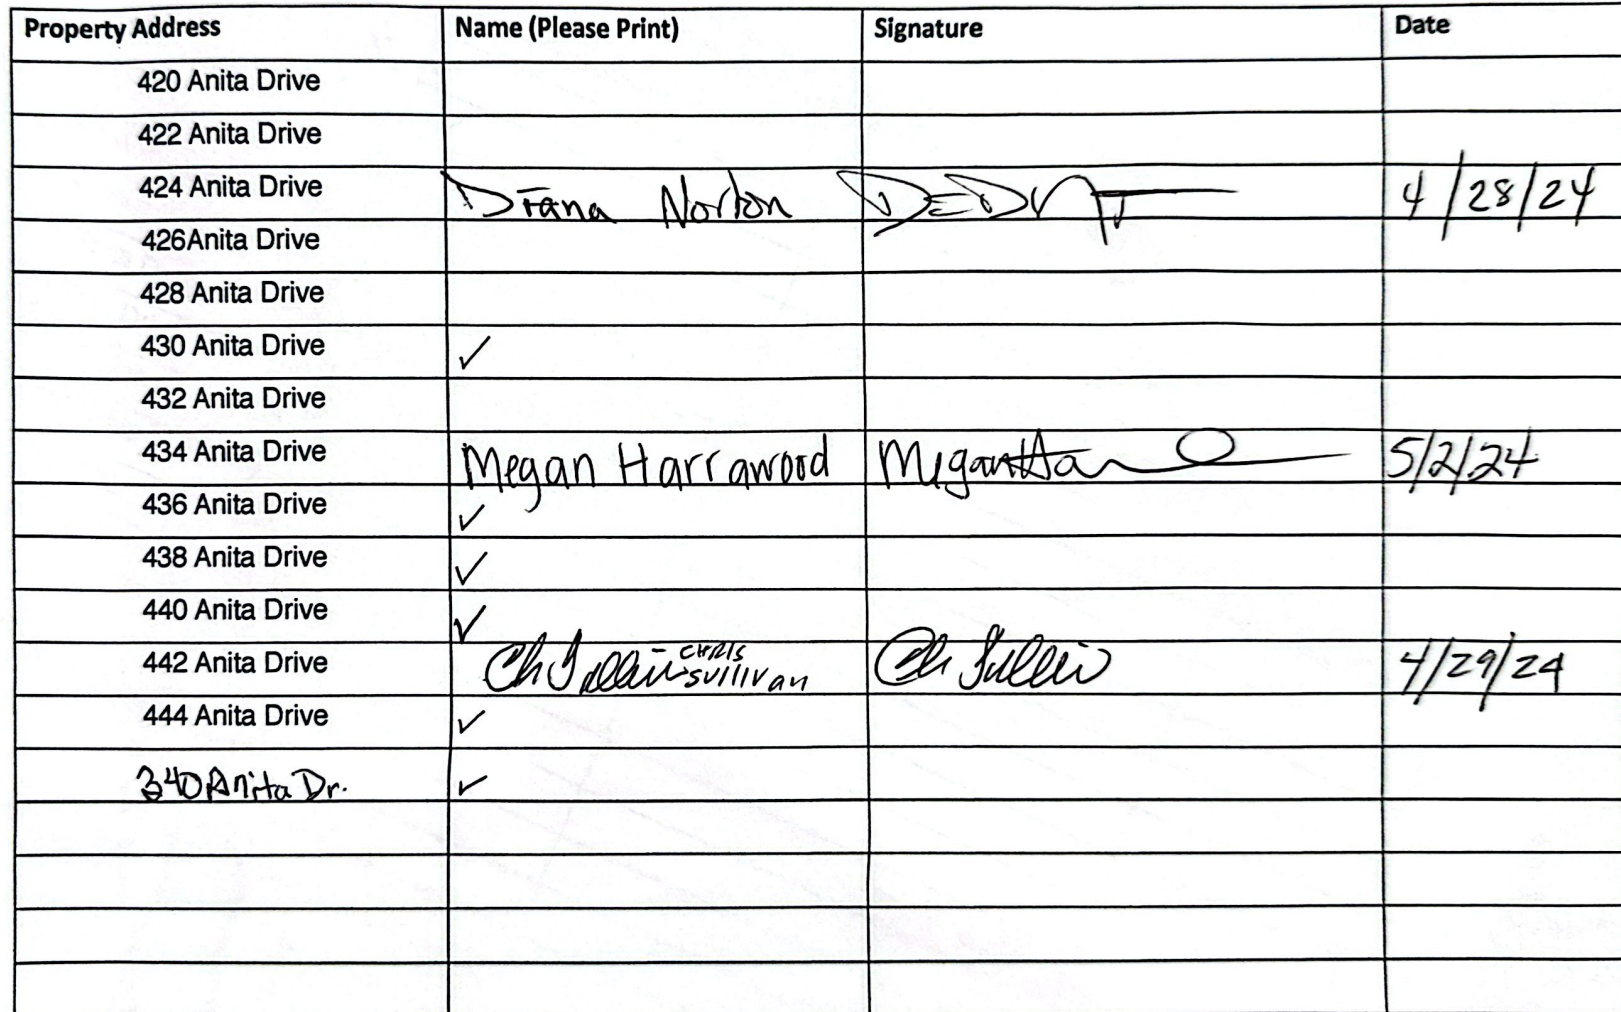 Property Address Name (Please Print) Signature Date
420 Anita Drive
422 Anita Drive
424 Anita Drive Diana Norton 4/28/24
426Anita Drive
428 Anita Drive
430 Anita Drive ✓
432 Anita Drive
434 Anita Drive Megan Harrawood 5/2/24
436 Anita Drive ✓
438 Anita Drive ✓
440 Anita Drive ✓
442 Anita Drive CHRIS SULLIVan 4/29/24
444 Anita Drive ✓
340 Anita Dr. ✓